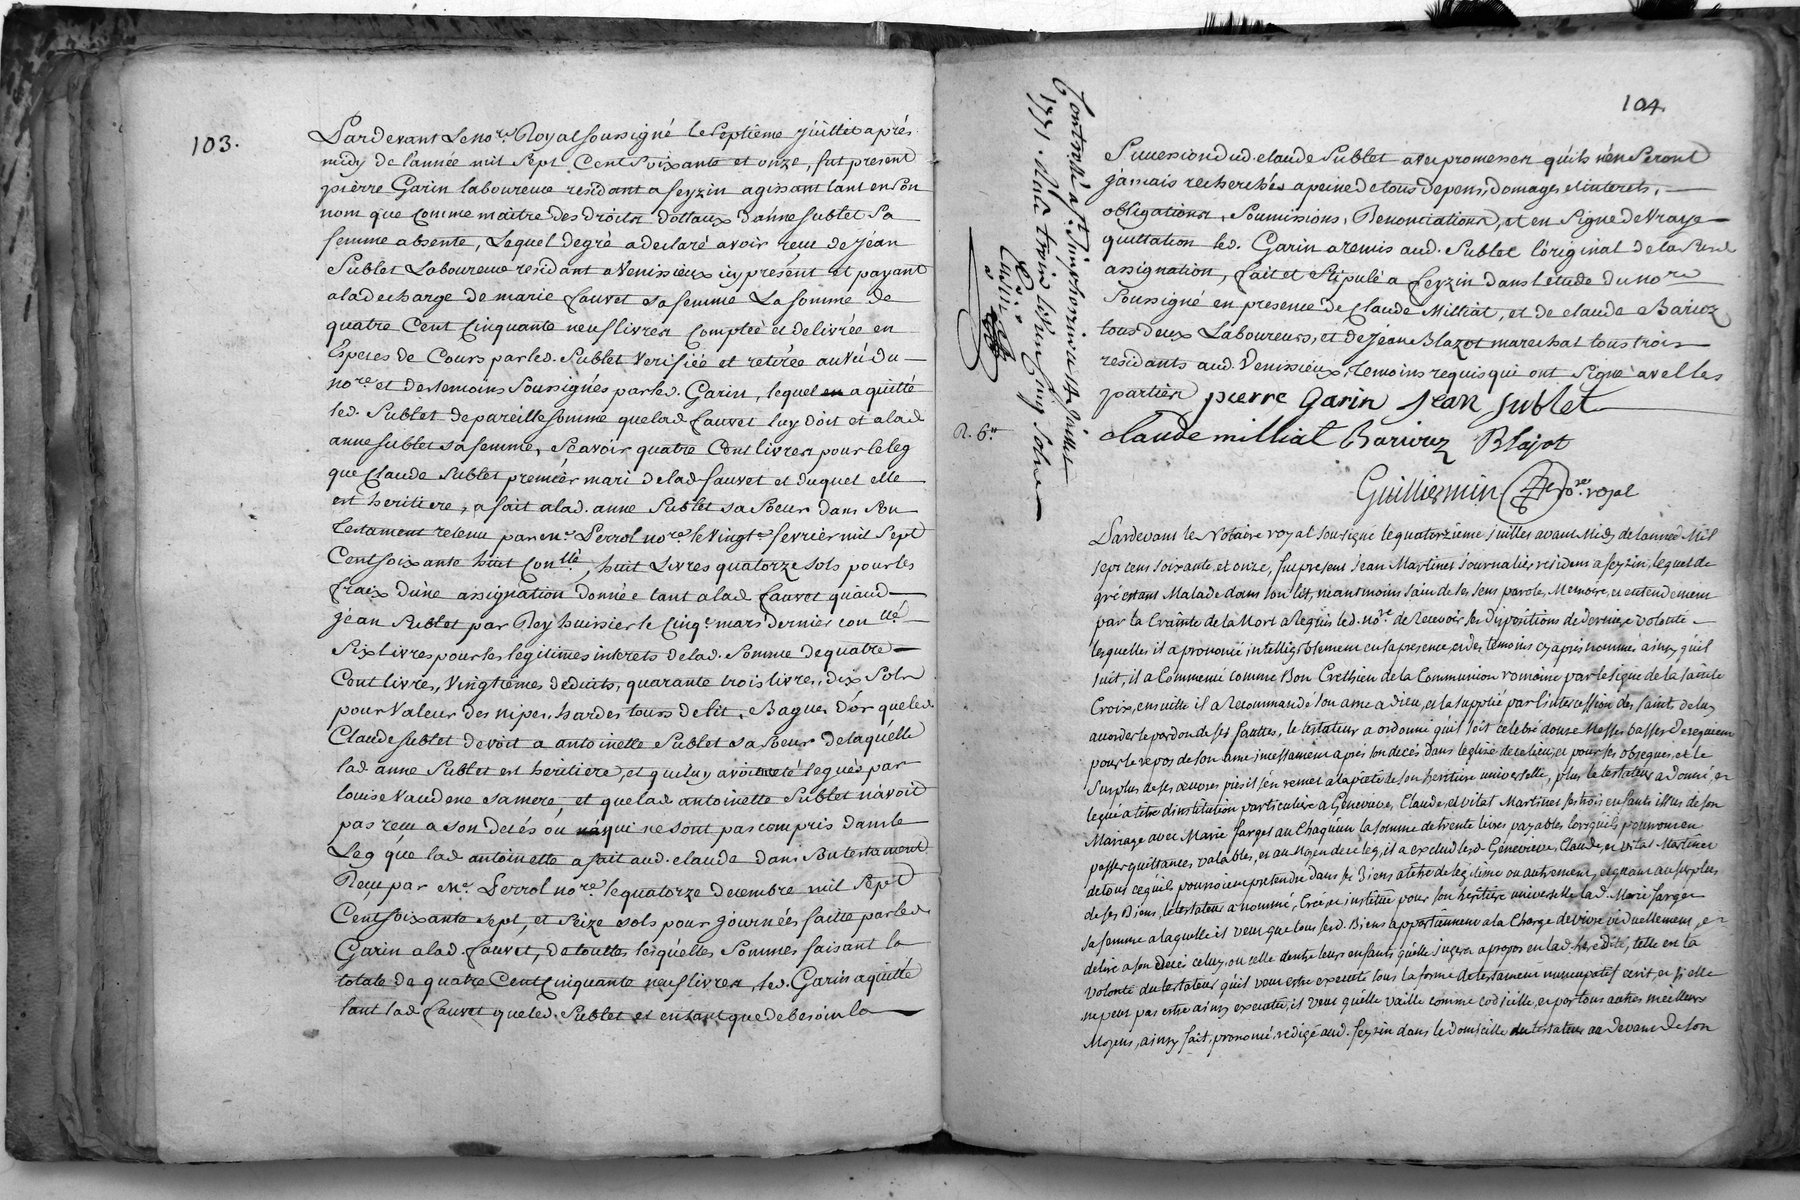 103.
Pardevant Le no.re Royal soussigné le septième juillet après
midy de l'année mil sept Cent soixante et onze, fut present
pierre Garin laboureur residant a feyzin agissant tant en son
nom que comme maitre des droits dottaux d'anne sublet sa
femme absente, Lequel de gré a declaré avoir reçu de jéan
Sublet Laboureur residant a Venissieux icy présent et payant
a la decharge de marie fauvet sa femme La somme de
quatre Cent Cinquante neuf livres Comptée et delivrée en
Especes de Cours par led. Sublet Verifiée et retirée au vû du
no.re et des temoins soussignés par led. Garin, lequel a quitté
led. Sublet de pareille somme que lad fauvet luy doit et a lad
anne sublet sa femme, sçavoir quatre Cent livres pour le leg
que Claude Sublet premiér mari de lad fauvet et duquel elle
est heritiere, a fait a lad. anne Sublet sa soeur dans son
Testament retenu par m.e Perrol no.re le vingt.e fevrier mil sept
Cent soixante huit Con.llé, huit Livres quatorze sols pour les
fraix d'une assignation donnée tant a lad fauvet qu'aud
jéan Sublet par Rey huissier le Cinq.e mars dernier con.llé
Six livres pour les legitimes interets de lad. somme de quatre
Cent livres, Vingtiemes deduits, quarante trois livres, dix sols
pour Valeur des nipes, hardes tours de lit, Bagues d'or que led.
Claude sublet devoit a antoinette Sublet sa soeur de laquélle
lad anne Sublet est heritiere, et qui luy avoient eté legués par
louise Vaudene sa mere, et que lad antoinette Sublet n'avoit
pas reçu a son decés ou qui ne sont pas compris dans le
Leg que lad antoinette a fait aud. claude dans son testament
Reçu par M.e Perrol no.re le quatorze decembre mil sept
Cent soixante sept, et seize sols pour journées faitte par led
Garin a lad. fauvet, de touttes lesquélles sommes faisant la
totale de quatre Cent Cinquante neuf livres, led. Garin a quitté
tant lad fauvet que led. Sublet et en tant que de besoin la
104.
Sucession dud. claude Sublet avec promesses qu'ils n'en seront
jamais recherchés a peine de tous depens, domages et interets,
obligations, Soumissions, Renonciations, et en Signe de Vraye
quittation led. Garin a remis aud. Sublet l'original de la susd
assignation, fait et stipulé a feyzin dans l'etude du no.re
Soussigné en presence de Claude Milliat, et de claude Barioz
tous deux Laboureurs, et de Jéan Blazot marechal tous trois
residants aud. Venissieux, temoins requis qui ont signé avec les
parties pierre Garin Jean Sublet
claude milliat Barioz Blajot
Guilliermin no.re royal
R. 6.s
Controllé a St Simphorien le 14 juillet
1771. Reçu trois livres cinq sols
Pardevant le Notaire royal soussigné le quatorzieme juillet avant Midy de l'année Mil
sept cens soixante, et onze, fut present jean Martinet journalier résident a feyzin, lequel de
gré estant Malade dans son lit, neantmoins sain de ses sens parole, Memoire, et entendement
par la Crainte de la Mort a Requis led. no.re de Recevoir les dispositions de derniere volonté
lesquelles il a prononcé intelligiblement en sa presence, et des temoins cy apres nommés ainsy qu'il
suit, il a Commencé comme Bon Crethien de la Communion romaine par le signe de la sainte
Croix, ensuitte il a Recommandé son ame a Dieu, et la supplié par l'intercession des saints de luy
accorder le pardon de ses fauttes, le testateur a ordonné qu'il soit celebré douze Messes basses De requiem
pour le repos de son ame incessament après son decés dans l'eglise de ce lieu, et pour ses obseques, et le
surplus de ses œuvres pies il s'en remet a la pieté de son heritiere universelle, plus le testateur a Donné, et
legué a titre d'institution particuliere a Genevieve, Claude, et vital Martinet ses trois enfants issus de son
Mariage avec Marie farges au Chaqu'un la somme de trente livres payables lorsqu'ils pourront en
passer quittances valables, et au Moyen de ce leg, il a exclud lesd. Genevieve, Claude, et vital Martinet
de tout ce qu'ils pourroient pretendre dans ses Biens a titre de legitime ou autrement, et quant au surplus
de ses Biens, le testateur a nommé, Créé et institué pour son heritiere universelle lad. Marie farges
sa femme a laquelle il veut que tous sesd. Biens appartiennent a la Charge de vivre viduellement, et
delire a son decés celuy, ou celle d'entre leurs enfants qu'elle jugera a propos en lad. heredité, telle est la
volonté du testateur qu'il veut estre executé sous la forme de testament nuncupatif ecrit, et si elle
ne peut pas estre ainsy executée, il veut qu'elle vaille comme codicille, et par tous autres meilleurs
Moyens, ainsy fait, prononcé, redigé aud. feyzin dans le Domicille du testateur au Devant de son